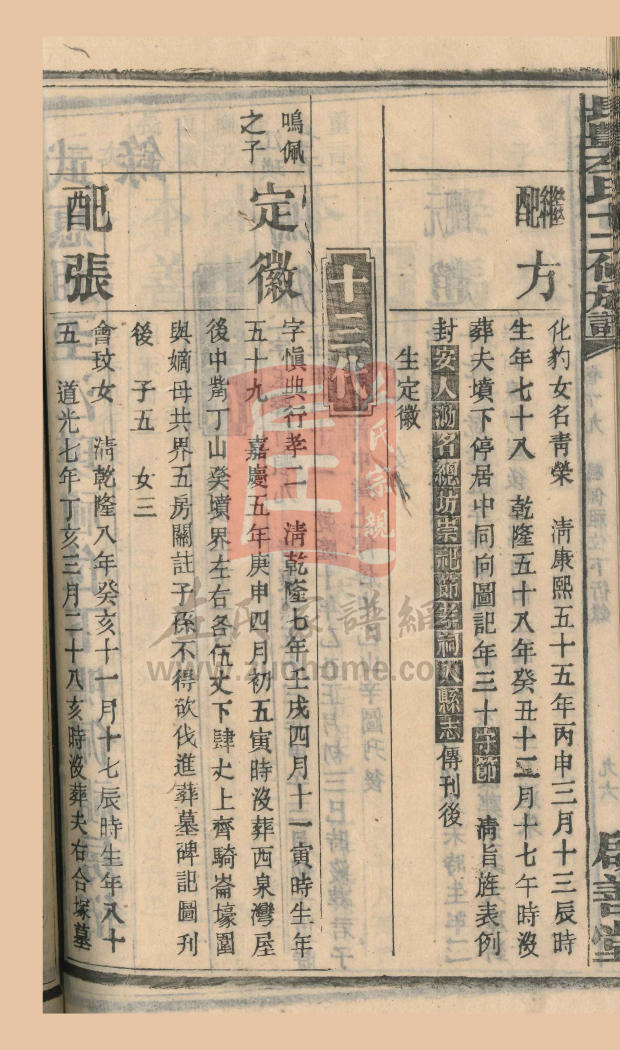 繼配方
化豹女名青榮 清康熙五十五年丙申三月十三辰時
生年七十八 乾隆五十八年癸丑十二月十七午時沒
葬夫墳下停居中同向圖記年三十守節 清旨旌表例
封安人 名總坊崇祀節孝祠入縣志傳刊後
生定徽
十三代
鳴佩
之子
定徽
字愼典行孝二 清乾隆七年壬戌四月十一寅時生年
五十九 嘉慶五年庚申四月初五寅時沒葬西泉灣屋
後中嘴丁山癸墳界左右各伍丈下肆丈上齊騎崙壕圍
與嫡母共界五房關註子孫不得欲伐進葬墓碑記圖刊
後 子五 女三
配張
會玟女 清乾隆八年癸亥十一月十七辰時生年八十
五 道光七年丁亥三月二十八亥時沒葬夫右合塚墓
九六
左氏宗親
左氏家譜網
www.zuohome.com